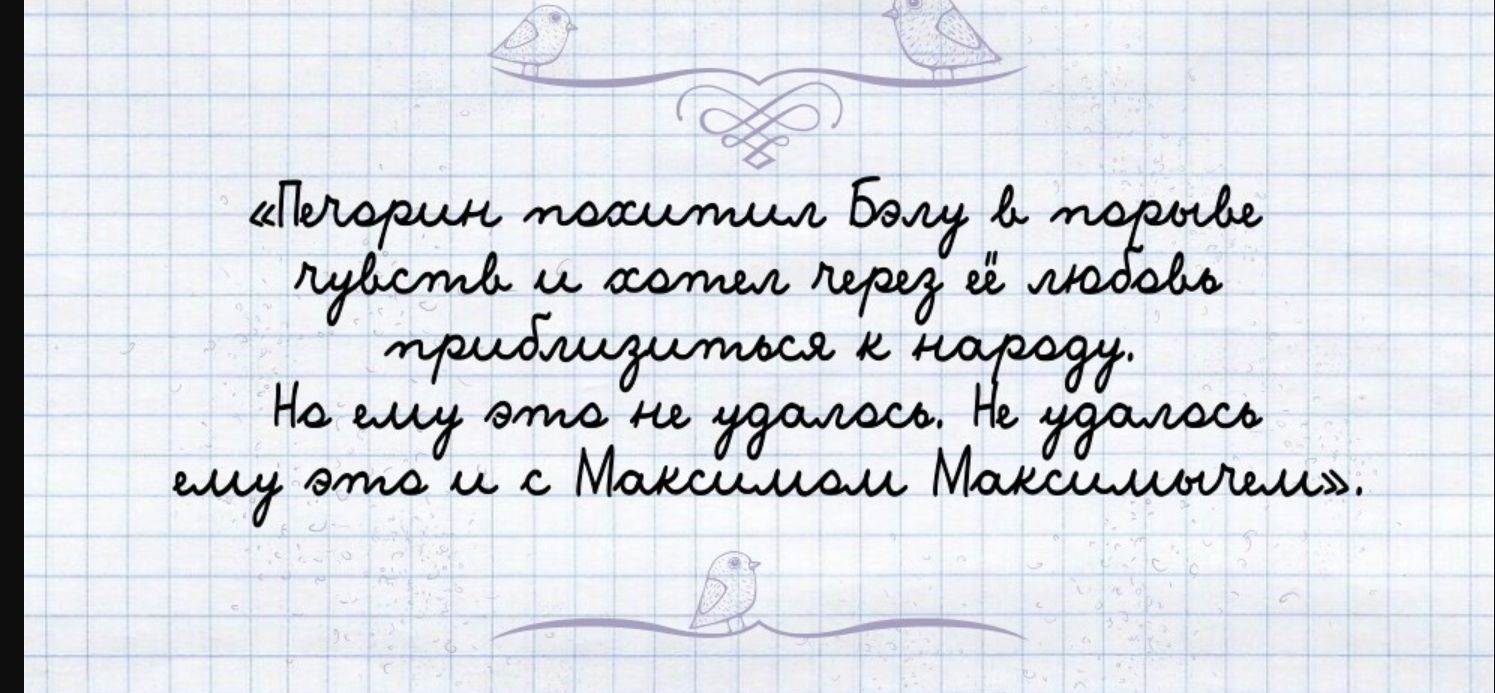 «Печорин похитил Бэлу в порыве
чувств и хотел через её любовь
приблизиться к народу.
Но ему это не удалось. Не удалось
ему это и с Максимом Максимычем».